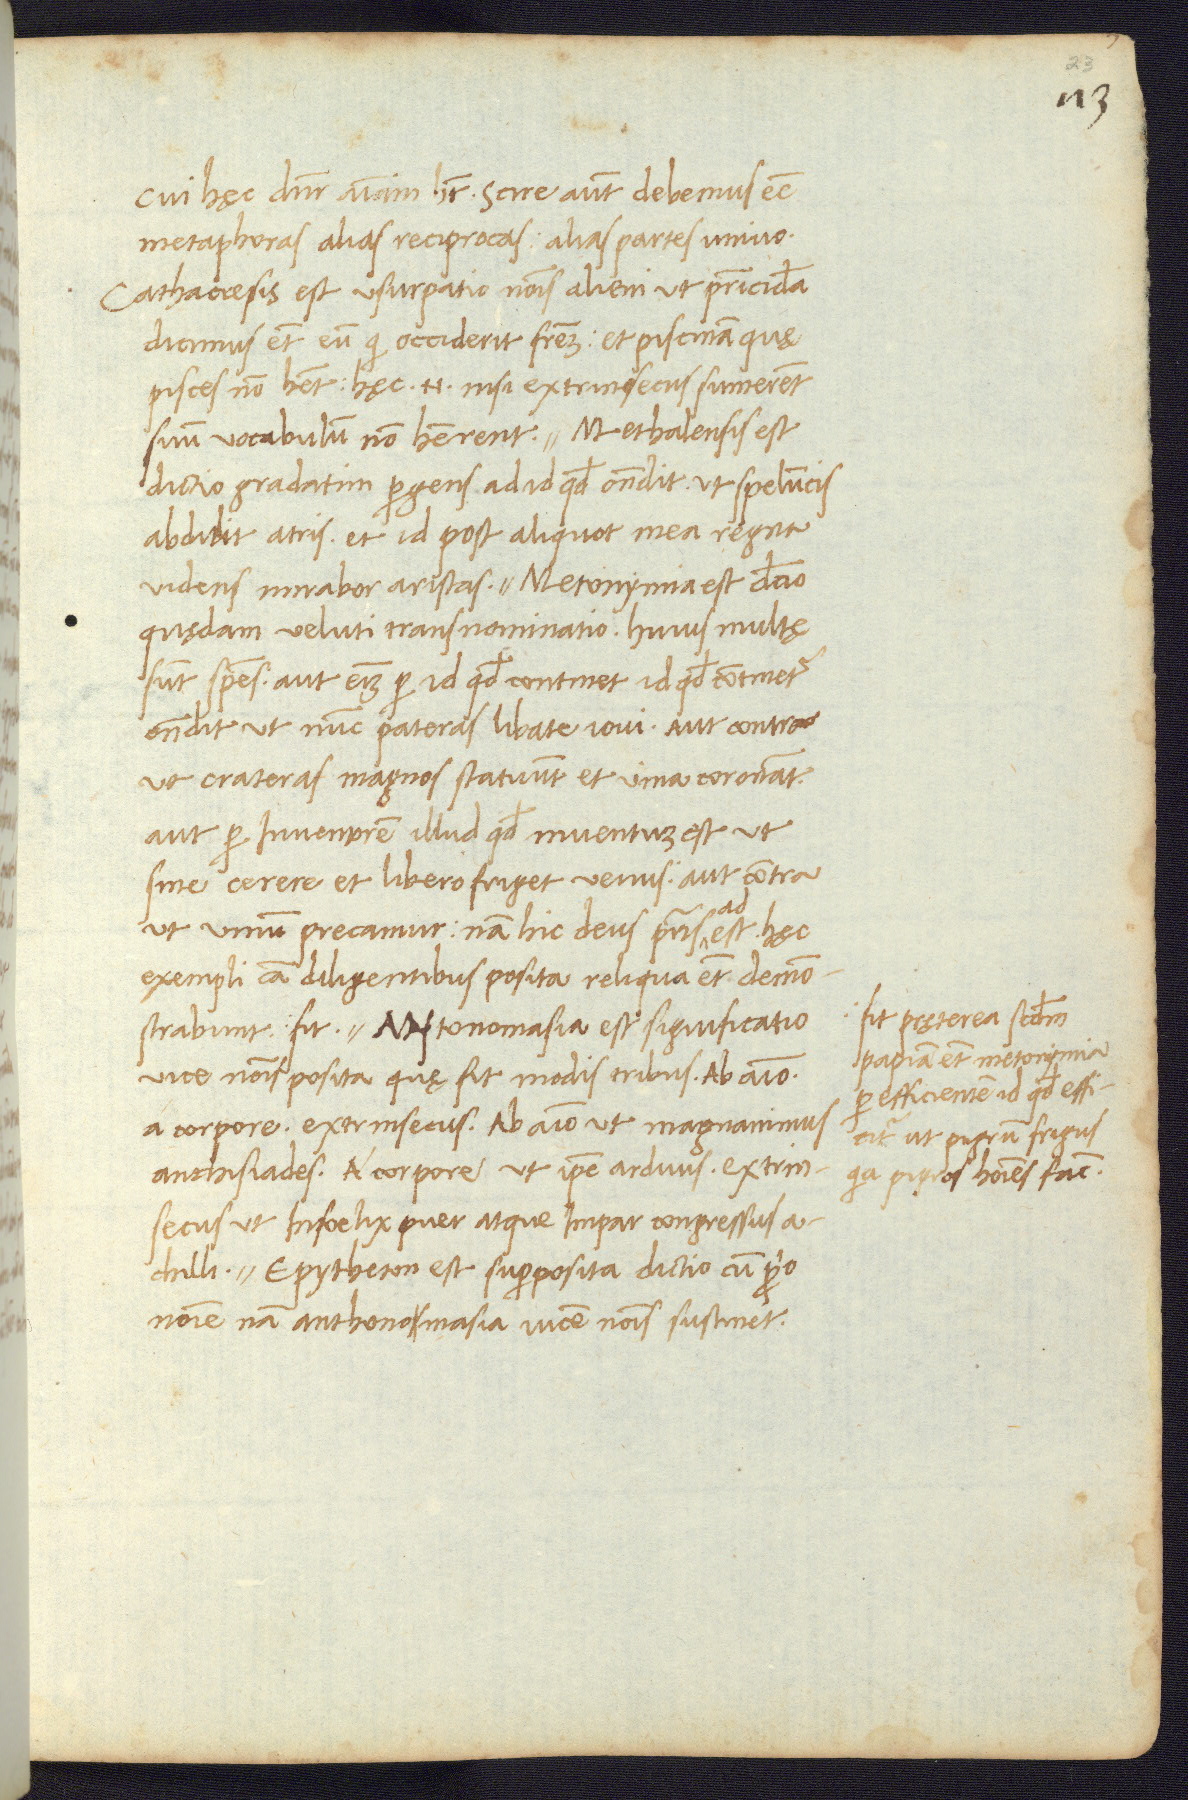 23
113
cui hęc dnr̄ aı̄am hr̄. Scire aūt debemus eē
metaphoras alias reciprocas: alias partes uniuo.
Cathacresis est usurpatio noı̄s alieni ut pr̄icidā
dicimus et̄ eū qi occiderit frēʒ: et piscinā quę
pisces nō hn̄t: hęc .n. nisi extrinsecus sumerēt
suū uocabulū nō hērent. // Methalensis est
dictio gradatim ꝑgens ad id qd̄ on̄dit. ut spelūcis
abdidit atris. et id post aliquot mea regna
uidens mirabor aristas. // Metonymia est dc̄io
quędam veluti transnominatio. huius multę
sūt spēs. aut em̄ ꝑ id qd̄ continet id qd̄ cōtinet᷑
on̄dit ut nūc pateras libate ioui. Aut contra
ut crateras magnos statuūt et uina coronāt.
aut ꝑ Inuentorē illud qd̄ inuentuʒ est ut
sine cerere et libero friget venus. aut cōtra
ut uinū precamur: nā hic deus pn̄s ad est. hęc
exempli cā diligentibus posita reliqua et̄ demō-
strabunt. : fit. // Antonomasia est significatio
vice noı̄s posita quę fit modis tribus. Ab aı̄o.
a corpore. extrinsecus. Ab aı̄o ut magnanimus
anchisiades. A corpore ut ip̄e arduus. extrin-
secus ut Infoelix puer atque Impar congressus a-
chilli. // Epytheton est suꝑposita dictio cū ꝓp̄o
noı̄e nā anthonomasia uicē noı̄s sustinet.
: fit pręterea scd̄m
papiā et̄ metonymia
ꝑ efficientē id qd̄ effi-
cit᷑ ut pigrū frigus
qa pigros hoı̄es fac̄.